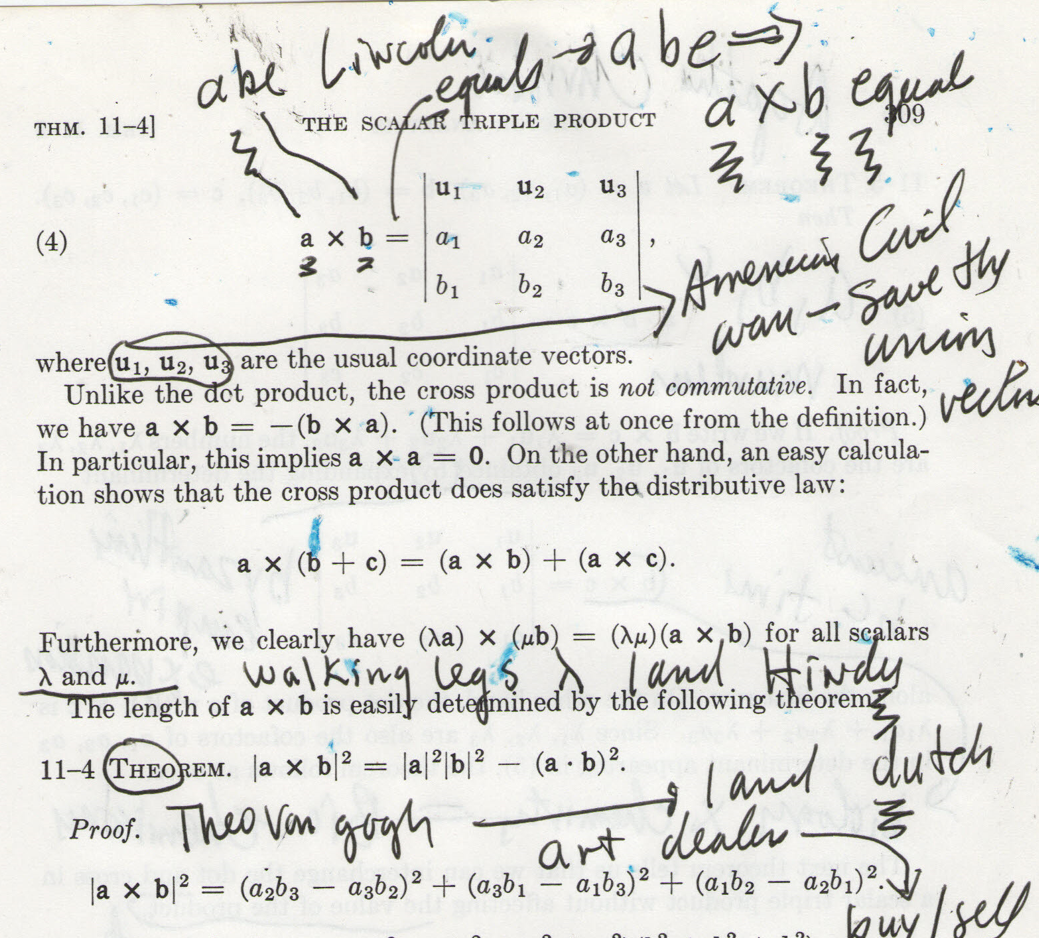 abe Lincoln equals → abe ⇒
a x b equal
THM. 11–4] THE SCALAR TRIPLE PRODUCT 309
u₁ u₂ u₃
(4) a × b = a₁ a₂ a₃ ,
b₁ b₂ b₃
American Civil
war – Save the
union
where u₁, u₂, u₃ are the usual coordinate vectors.
Unlike the dct product, the cross product is not commutative. In fact,
we have a × b = −(b × a). (This follows at once from the definition.)
In particular, this implies a × a = 0. On the other hand, an easy calcula-
tion shows that the cross product does satisfy the distributive law:
a × (b + c) = (a × b) + (a × c).
Furthermore, we clearly have (λa) × (μb) = (λμ)(a × b) for all scalars
λ and μ. walking legs λ land Hindy
The length of a × b is easily determined by the following theorem.
11–4 THEOREM. |a × b|² = |a|²|b|² − (a · b)².
land dutch
Proof. Theo Van gogh
art dealer
|a × b|² = (a₂b₃ − a₃b₂)² + (a₃b₁ − a₁b₃)² + (a₁b₂ − a₂b₁)²
buy/sell